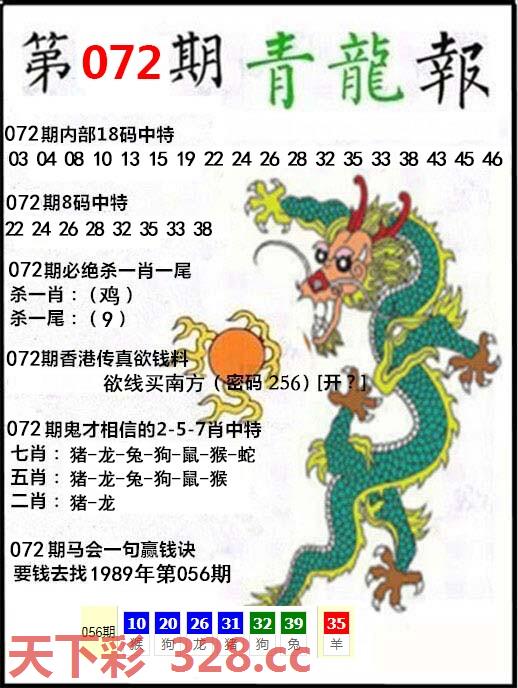 第072期青龍報
072期内部18码中特
03 04 08 10 13 15 19 22 24 26 28 32 35 33 38 43 45 46
072期8码中特
22 24 26 28 32 35 33 38
072期必绝杀一肖一尾
杀一肖：（鸡）
杀一尾：（9）
072期香港传真欲钱料
欲线买南方（密码 256）[开？]
072期鬼才相信的2-5-7肖中特
七肖：猪-龙-兔-狗-鼠-猴-蛇
五肖：猪-龙-兔-狗-鼠-猴
二肖：猪-龙
072期马会一句赢钱诀
要钱去找1989年第056期
056期 10 20 26 31 32 39 35
猴 狗 龙 猪 狗 兔 羊
天下彩 328.cc